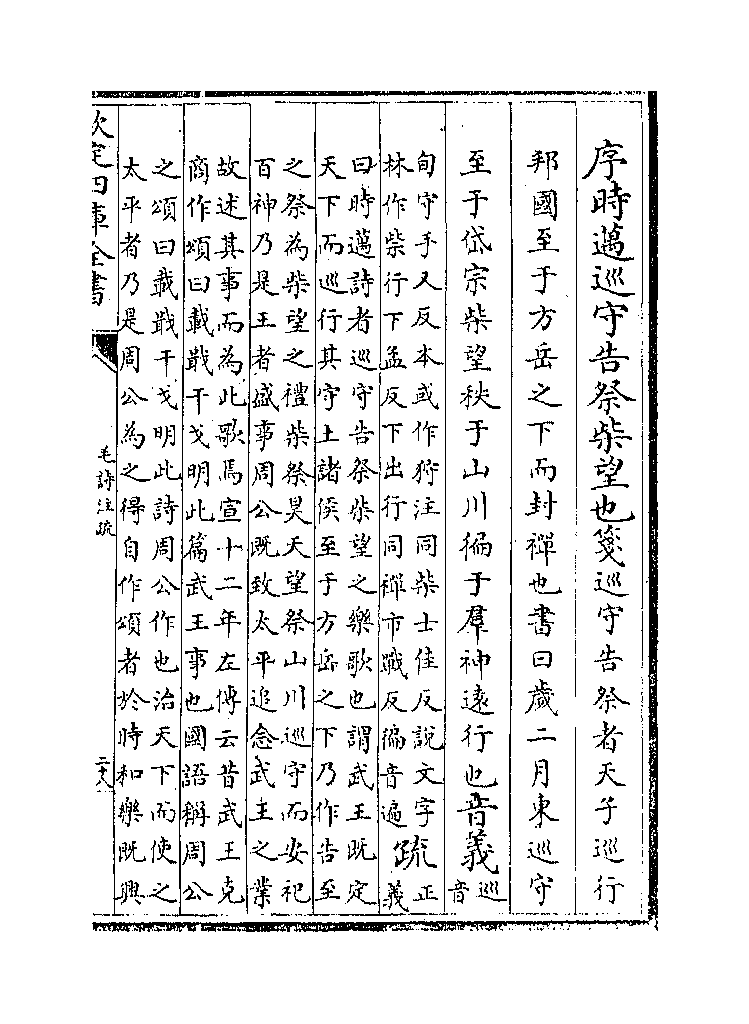 序時邁巡守告祭柴望也箋巡守告祭者天子巡行
邦國至于方岳之下而封禪也書曰歲二月東巡守
至于岱宗柴望秩于山川徧于羣神遠行也音義巡音
旬守手又反本或作狩注同柴士佳反說文字
林作柴行下孟反下出行同禪市戰反徧音遍疏正義
曰時邁詩者巡守告祭柴望之樂歌也謂武王既定
天下而巡行其守土諸侯至于方岳之下乃作告至
之祭為柴望之禮柴祭昊天望祭山川巡守而安祀
百神乃是王者盛事周公既致太平追念武王之業
故述其事而為此歌焉宣十二年左傳云昔武王克
商作頌曰載戢干戈明此篇武王事也國語稱周公
之頌曰載戢干戈明此詩周公作也治天下而使之
太平者乃是周公為之得自作頌者於時和樂既興
欽定四庫全書
毛詩注疏
二十八